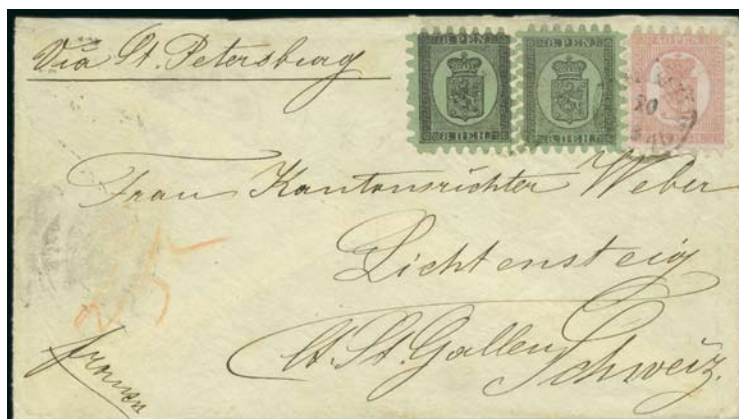 Via St. Petersburg
8 PEN. 8 PEN. 40 PEN
8 ПЕН. 8 ПЕН.
20
Frau Kantonsrichter Weber
Lichtensteig
Ct. St. Gallen Schweiz.
25